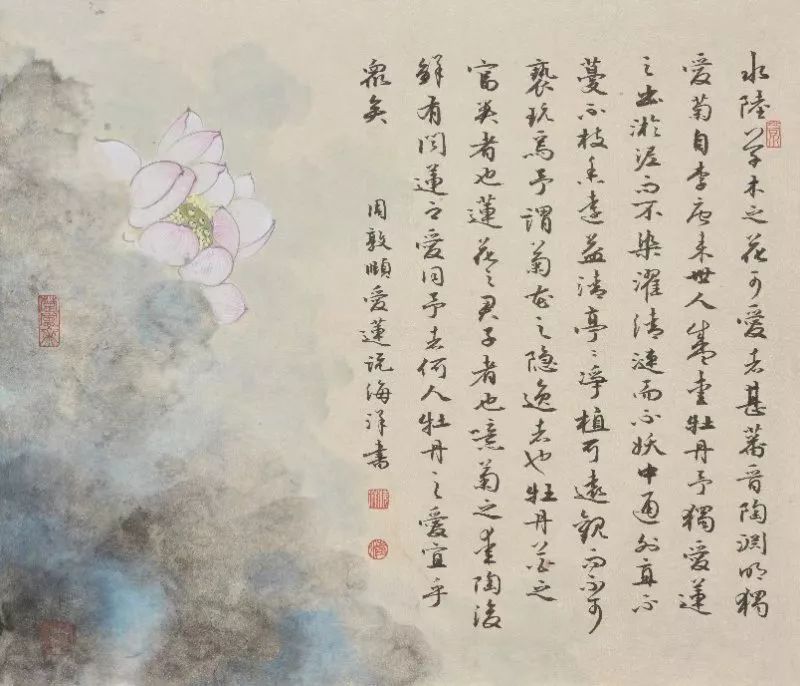 水陸草木之花可愛者甚蕃晋陶渊明獨
愛菊自李唐来世人盛愛牡丹予獨愛蓮
之出淤泥而不染濯清漣而不妖中通外直不
蔓不枝香遠益清亭〻淨植可遠觀而不可
褻玩焉予謂菊花之隐逸者也牡丹花之
富貴者也蓮花之君子者也噫菊之愛陶後
鲜有闻蓮之愛同予者何人牡丹之愛宜乎
衆矣
周敦頤愛蓮说海洋書